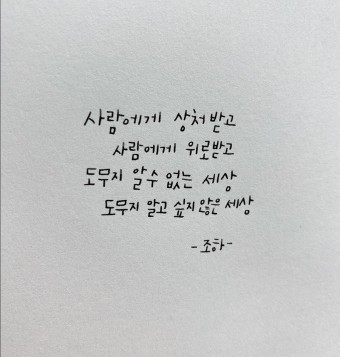 사람에게 상처받고
사람에게 위로받고
도무지 알 수 없는 세상
도무지 알고 싶지 않은 세상
- 조하 -